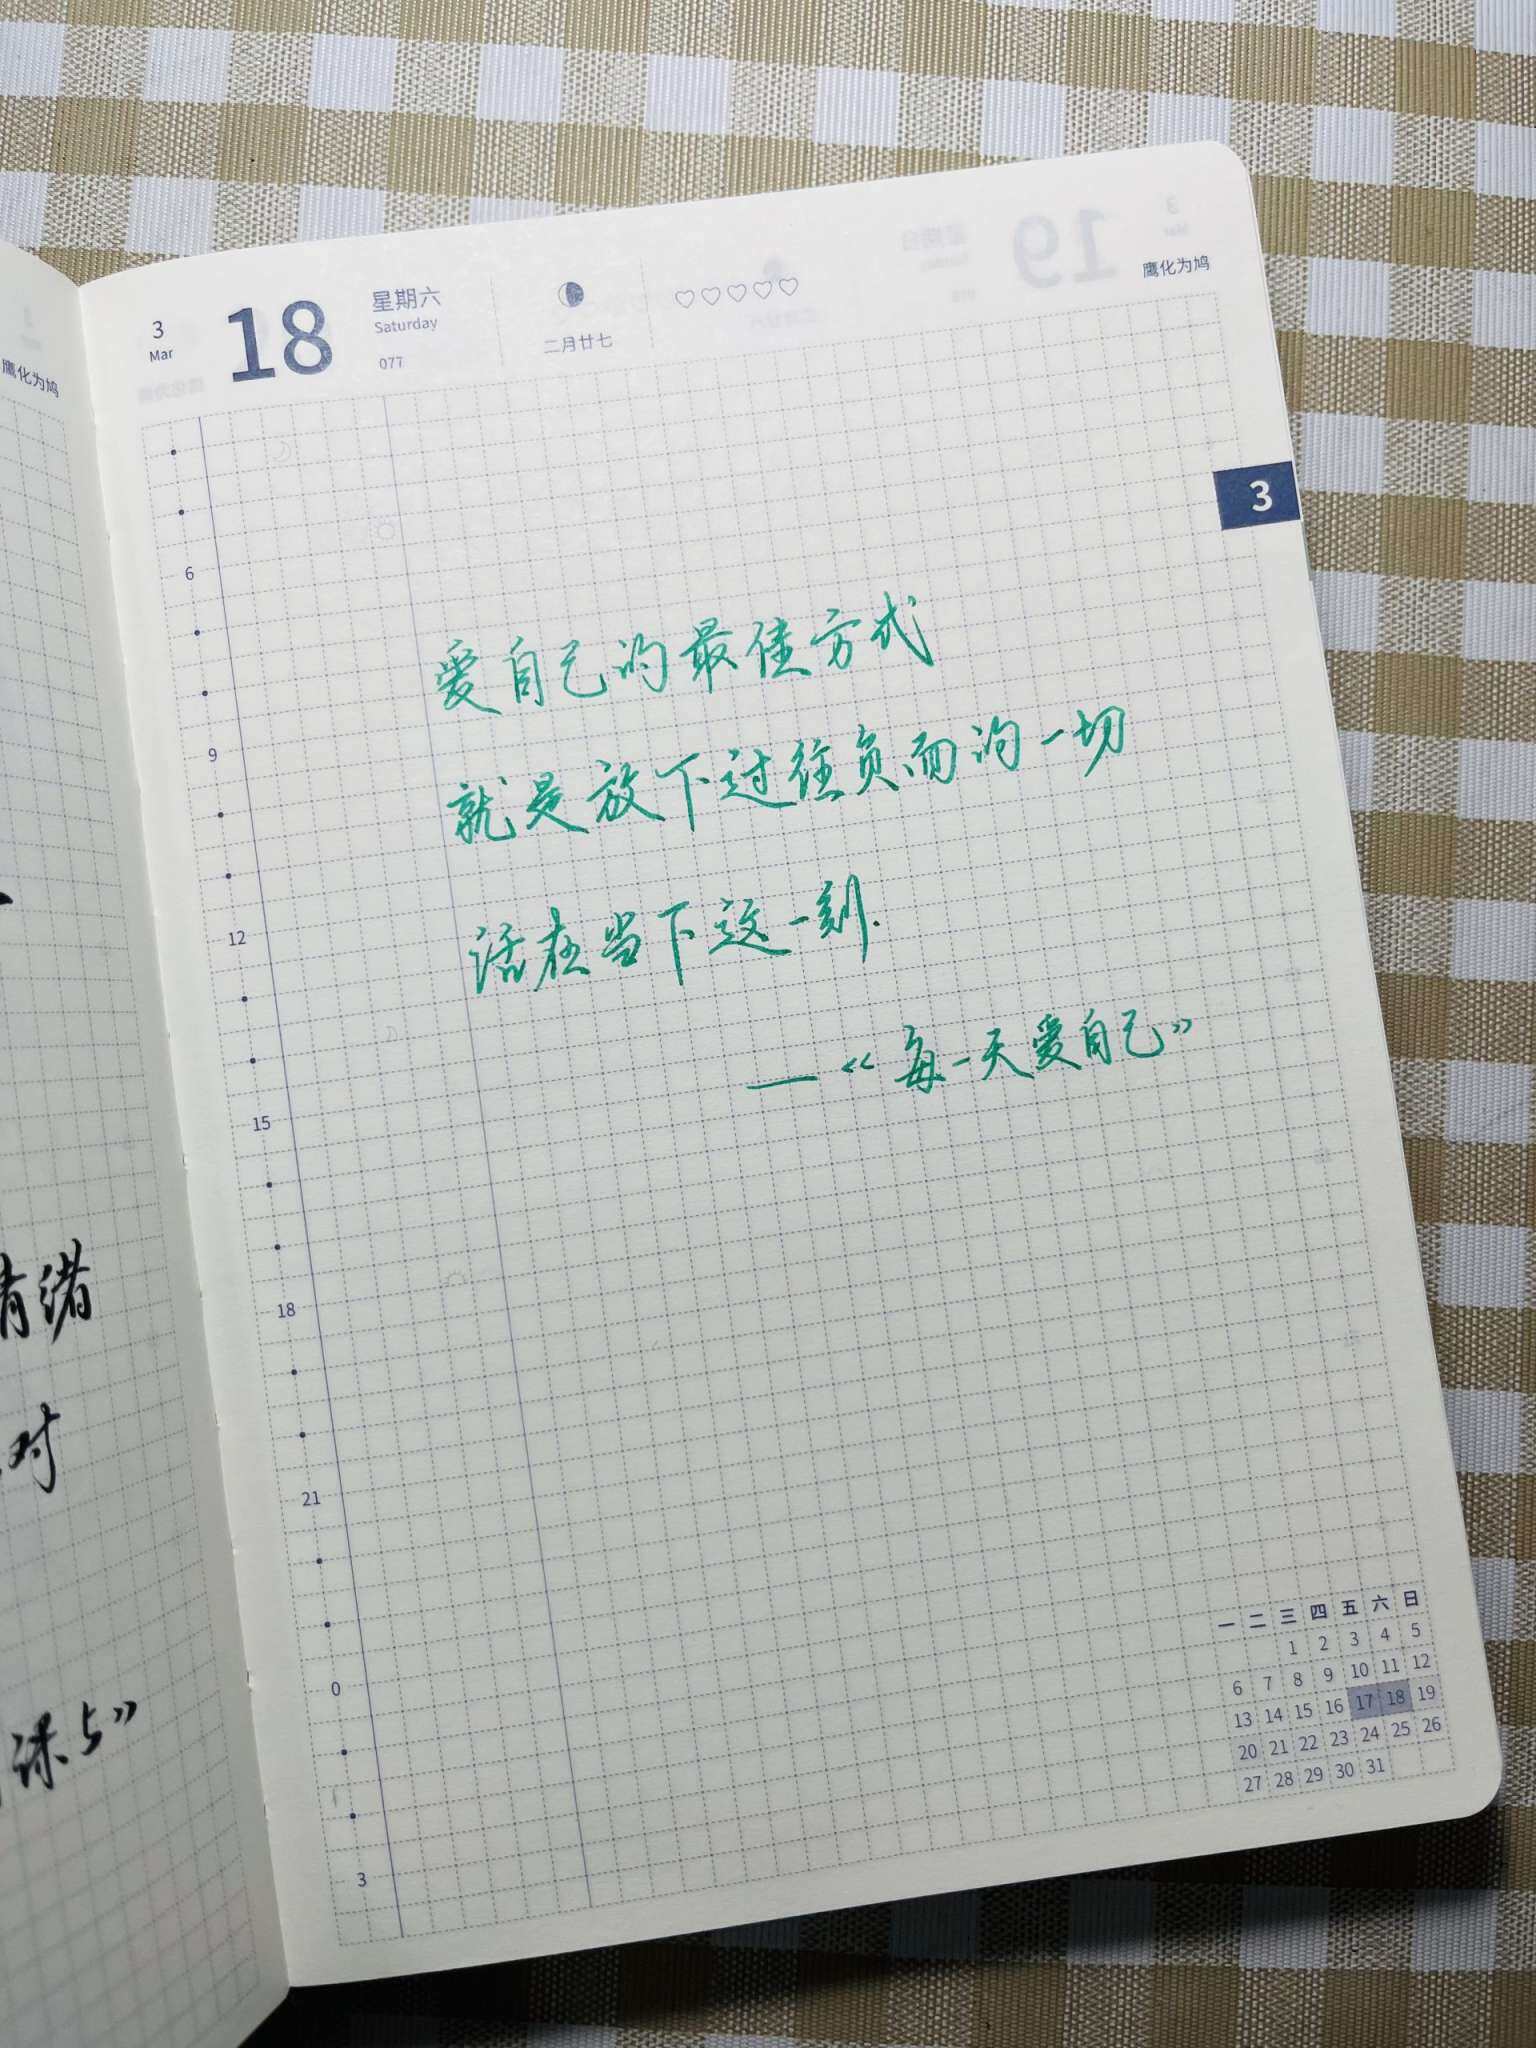 鹰化为鸠
情绪
对
课》
3
Mar
18
星期六
Saturday
077
二月廿七
鹰化为鸠
3
6
9
12
15
18
21
0
3
爱自己的最佳方式
就是放下过往负面的一切
活在当下这一刻.
—《每一天爱自己》
一 二 三 四 五 六 日
1 2 3 4 5
6 7 8 9 10 11 12
13 14 15 16 17 18 19
20 21 22 23 24 25 26
27 28 29 30 31